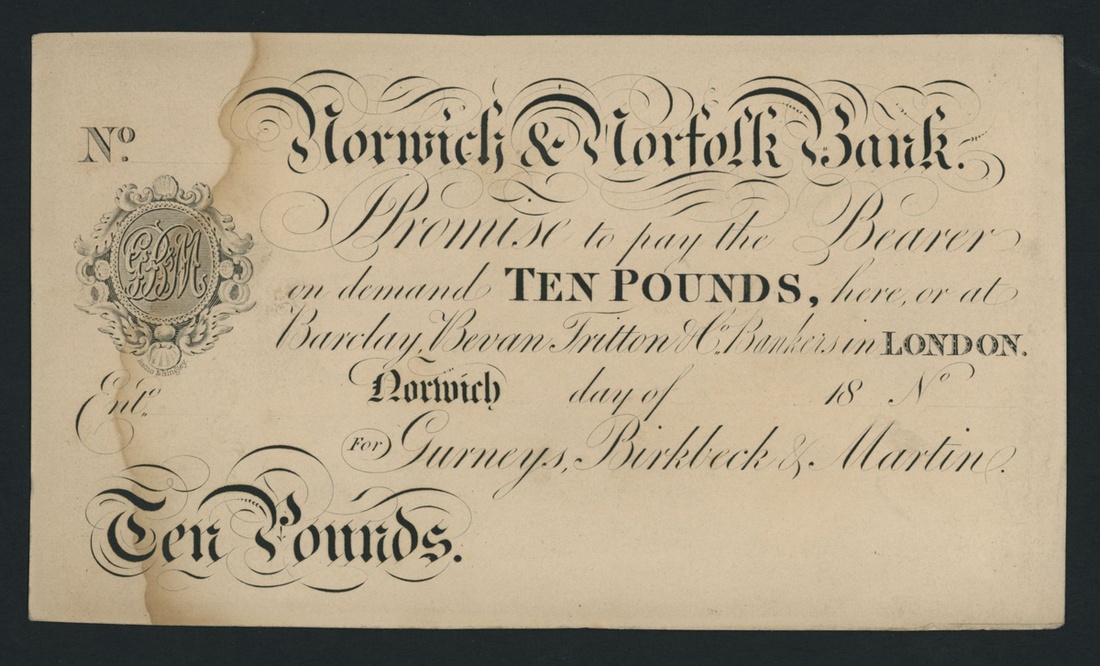 No.
Norwich & Norfolk Bank.
I Promise to pay the Bearer
on demand TEN POUNDS, here, or at
Barclay, Bevan Tritton & Co. Bankers in LONDON.
Entd.
Norwich day of 18 No
For Gurneys, Birkbeck & Martin.
Ten Pounds.